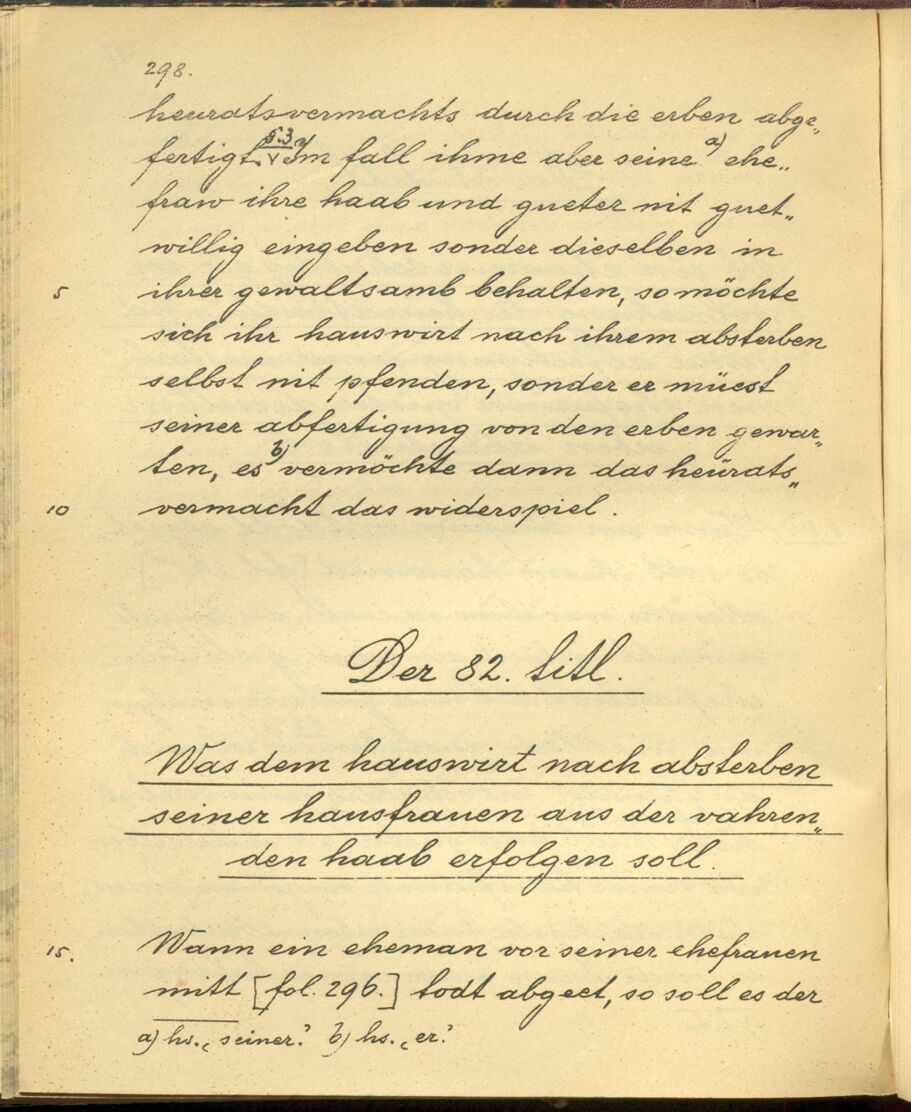 298.
heuratsvermachts durch die erben abge„
fertigt. §.3 Im fall ihme aber seine a) ehe„
fraw ihre haab und gueter nit guet„
willig eingeben sonder dieselben in
5 ihrer gewaltsamb behalten, so möchte
sich ihr hauswirt nach ihrem absterben
selbst nit pfenden, sonder er müest
seiner abfertigung von den erben gewar„
ten, es b) vermöchte dann das heürats„
10 vermacht das widerspiel.
Der 82. titl.
Was dem hauswirt nach absterben
seiner hausfrauen aus der vahren„
den haab erfolgen soll.
15. Wann ein eheman vor seiner ehefrauen
mitt [fol. 296.] todt abgeet, so soll es der
a) hs. ‚seiner.‘ b) hs. ‚er.‘